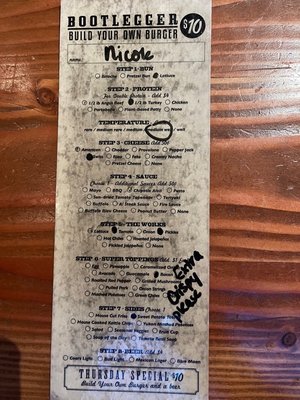 BOOTLEGGER $10
BUILD YOUR OWN BURGER
Nicole
STEP 1 - BUN
Brioche Pretzel Bun Lettuce
STEP 2 - PROTEIN
For Double Protein - Add $4
1/2 lb Angus Beef 1/2 lb Turkey Chicken
Portobello Plant-Based Patty None
TEMPERATURE
rare / medium rare / medium / medium well / well
STEP 3 - CHEESE
American Cheddar Provolone Pepper Jack
Swiss Bleu Feta Ghost Nacho
Pretzel Cheese None
STEP 4 - SAUCE
Choose 1 - Additional Sauces Add 50¢
Mayo BBQ Chipotle Aioli Pesto
Sun-dried Tomato Tapenade Teriyaki
Buffalo A1 Steak Sauce Fire Sauce
Buffalo Bleu Cheese Peanut Butter None
STEP 5 - THE WORKS
Lettuce Tomato Onion Pickles
Hot Chiles Roasted Jalapeños
Pickled Jalapeños None
STEP 6 - SUPER TOPPINGS Add $1
Egg Pineapple Caramelized
Avocado Guacamole Bacon
Roasted Red Pepper Grilled Mushrooms
Pulled Pork Onion Strings
Mashed Potatoes Green Chiles
Extra
Crispy
please
STEP 7 - SIDES Choose 1
House Cut Fries Sweet Potato
House Cooked Kettle Chips Yukon Mashed Potatoes
Salad Seasonal Veggies Fruit Cup
Soup of the Day Tomato Basil Soup
STEP 8 - BEER Add $4
Coors Light Bud Light Mexican Lager Blue Moon
THURSDAY SPECIAL $10
Build Your Own Burger and a beer